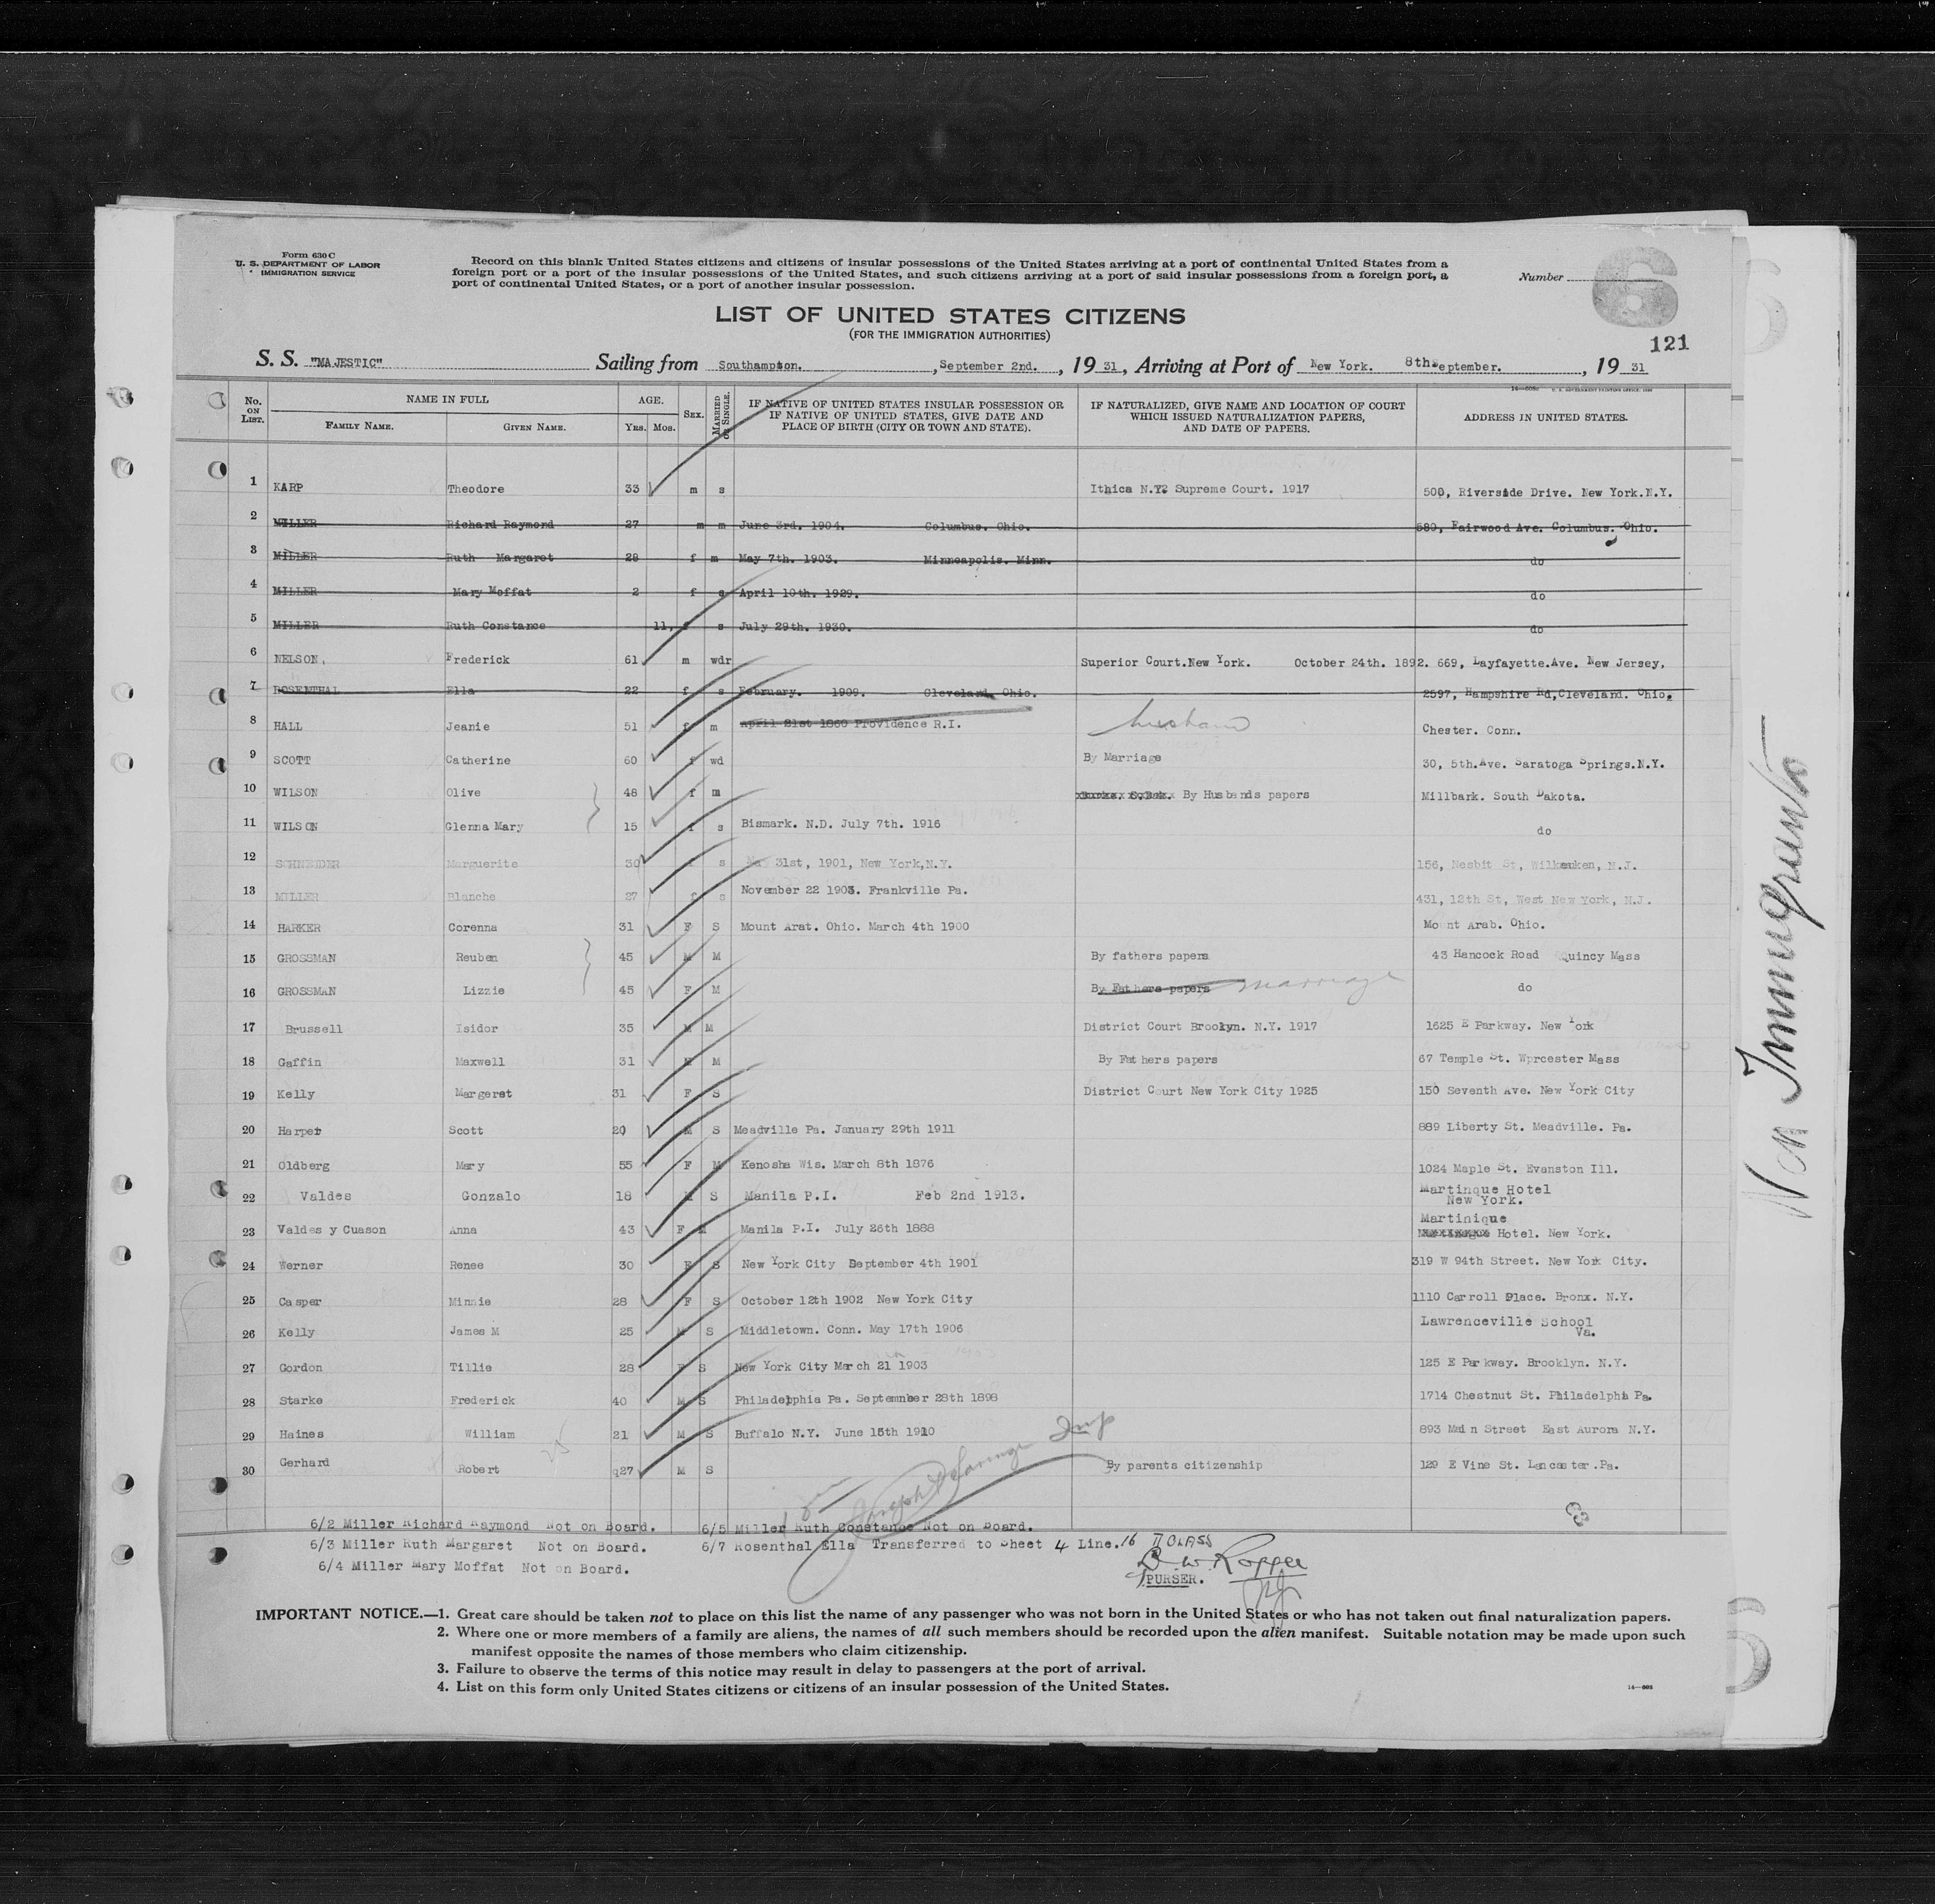 Form 630 C
U. S. DEPARTMENT OF LABOR
IMMIGRATION SERVICE
Record on this blank United States citizens and citizens of insular possessions of the United States arriving at a port of continental United States from a
foreign port or a port of the insular possessions of the United States, and such citizens arriving at a port of said insular possessions from a foreign port, a
port of continental United States, or a port of another insular possession.
Number 6
LIST OF UNITED STATES CITIZENS
(FOR THE IMMIGRATION AUTHORITIES)
121
S. S. "MAJESTIC" Sailing from Southampton, September 2nd. , 19 31, Arriving at Port of New York. 8th September. , 19 31
No. ON LIST. NAME IN FULL FAMILY NAME. GIVEN NAME. AGE. YRS. MOS. SEX. MARRIED OR SINGLE. IF NATIVE OF UNITED STATES INSULAR POSSESSION OR IF NATIVE OF UNITED STATES, GIVE DATE AND PLACE OF BIRTH (CITY OR TOWN AND STATE). IF NATURALIZED, GIVE NAME AND LOCATION OF COURT WHICH ISSUED NATURALIZATION PAPERS, AND DATE OF PAPERS. ADDRESS IN UNITED STATES.
1 KARP Theodore 33 m s Ithica N.Y. Supreme Court. 1917 500, Riverside Drive. New York.N.Y.
2 MILLER Richard Raymond 27 m m June 3rd. 1904. Columbus. Ohio. 580, Fairwood Ave. Columbus. Ohio.
3 MILLER Ruth Margaret 28 f m May 7th. 1903. Minneapolis. Minn. do
4 MILLER Mary Moffat 2 f s April 10th. 1929. do
5 MILLER Ruth Constance 11, f s July 29th. 1930. do
6 NELSON, Frederick 61 m wdr Superior Court.New York. October 24th. 1892. 669, Layfayette.Ave. New Jersey,
7 ROSENTHAL Ella 22 f s February. 1909. Cleveland. Ohio. 2597, Hampshire Rd,Cleveland. Ohio.
8 HALL Jeanie 51 f m April 21st 1860 Providence R.I. husband Chester. Conn.
9 SCOTT Catherine 60 f wd By Marriage 30, 5th.Ave. Saratoga Springs.N.Y.
10 WILSON Olive 48 f m By Husbands papers Millbark. South Dakota.
11 WILSON Glenna Mary 15 f s Bismark. N.D. July 7th. 1916 do
12 SCHNEIDER Marguerite 30 f s 31st, 1901, New York,N.Y. 156, Nesbit St, N.J.
13 MILLER Blanche 27 f s November 22 1903. Frankville Pa. 431, 12th St, West New York, N.J.
14 HARKER Corenna 31 F S Mount Arat. Ohio. March 4th 1900 Mount Arab. Ohio.
15 GROSSMAN Reuben 45 M M By fathers papers 43 Hancock Road Quincy Mass
16 GROSSMAN Lizzie 45 F M By Fathers papers marriage do
17 Brussell Isidor 35 M M District Court Brooklyn. N.Y. 1917 1625 E Parkway. New York
18 Gaffin Maxwell 31 M M By Fathers papers 67 Temple St. Wprcester Mass
19 Kelly Margeret 31 F S District Court New York City 1925 150 Seventh Ave. New York City
20 Harper Scott 20 M S Meadville Pa. January 29th 1911 889 Liberty St. Meadville. Pa.
21 Oldberg Mary 55 F M Kenosha Wis. March 8th 1876 1024 Maple St. Evanston Ill.
22 Valdes Gonzalo 18 M S Manila P.I. Feb 2nd 1913. Martinque Hotel New York.
23 Valdes y Cuason Anna 43 F M Manila P.I. July 26th 1888 Martinique Hotel. New York.
24 Werner Renee 30 F S New York City September 4th 1901 319 W 94th Street. New York City.
25 Casper Minnie 28 F S October 12th 1902 New York City 1110 Carroll Place. Bronx. N.Y.
26 Kelly James M 25 M S Middletown. Conn. May 17th 1906 Lawrenceville School Va.
27 Gordon Tillie 28 F S New York City March 21 1903 125 E Parkway. Brooklyn. N.Y.
28 Starke Frederick 40 M S Philadelphia Pa. Septemner 28th 1898 1714 Chestnut St. Philadelphi Pa.
29 Haines William 21 M S Buffalo N.Y. June 15th 1910 893 Main Street East Aurora N.Y.
30 Gerhard Robert 27 M S By parents citizenship 129 E Vine St. Lancaster.Pa.
6/2 Miller Richard Raymond Not on Board. 6/5 Miller Ruth Constance Not on Board.
6/3 Miller Ruth Margaret Not on Board. 6/7 Rosenthal Ella Transferred to Sheet 4 Line.16 II CLASS
6/4 Miller Mary Moffat Not on Board.
PURSER.
IMPORTANT NOTICE.—1. Great care should be taken not to place on this list the name of any passenger who was not born in the United States or who has not taken out final naturalization papers.
2. Where one or more members of a family are aliens, the names of all such members should be recorded upon the alien manifest. Suitable notation may be made upon such
manifest opposite the names of those members who claim citizenship.
3. Failure to observe the terms of this notice may result in delay to passengers at the port of arrival.
4. List on this form only United States citizens or citizens of an insular possession of the United States.
14—608
Non Immigrants